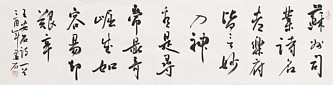 蘇州司
業詩名
老樂府
皆言妙
入神
看是尋
常最奇
崛成如
容易却
艱辛
王安石詩一首